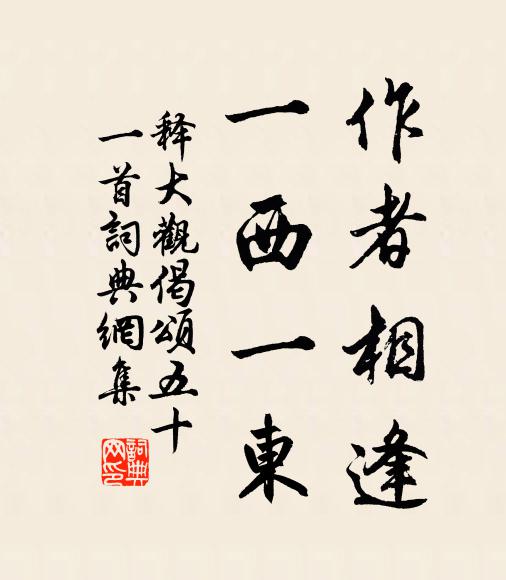 作者相逢
一西一東
释大觀偈頌五十
一首詞典網集
詞典
网印